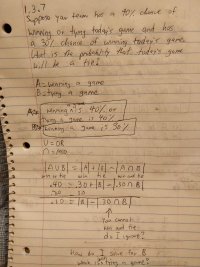 1.3.7
Suppose your team has a 40% chance of
winning or tying today's game and has
a 30% chance of winning today's game.
What is the probability that today's game
will be a tie?
A = winning a game
B = tying a game
winning is 40% or
tying a game is 30%
U = OR
∩ = AND
|A∪B| = |A| + |B| - |A∩B|
win or tie win tie win and tie
.40 = .30 + |B| - .30∩B
-.30 -.30
.10 = |B| - .30∩B
You cannot
win and tie
do I ignore?
How do I solve for B
which is tying a game?